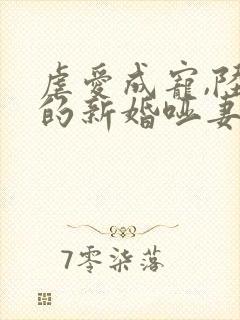 虐爱成宠,陆
的新婚哑妻
7零柒落